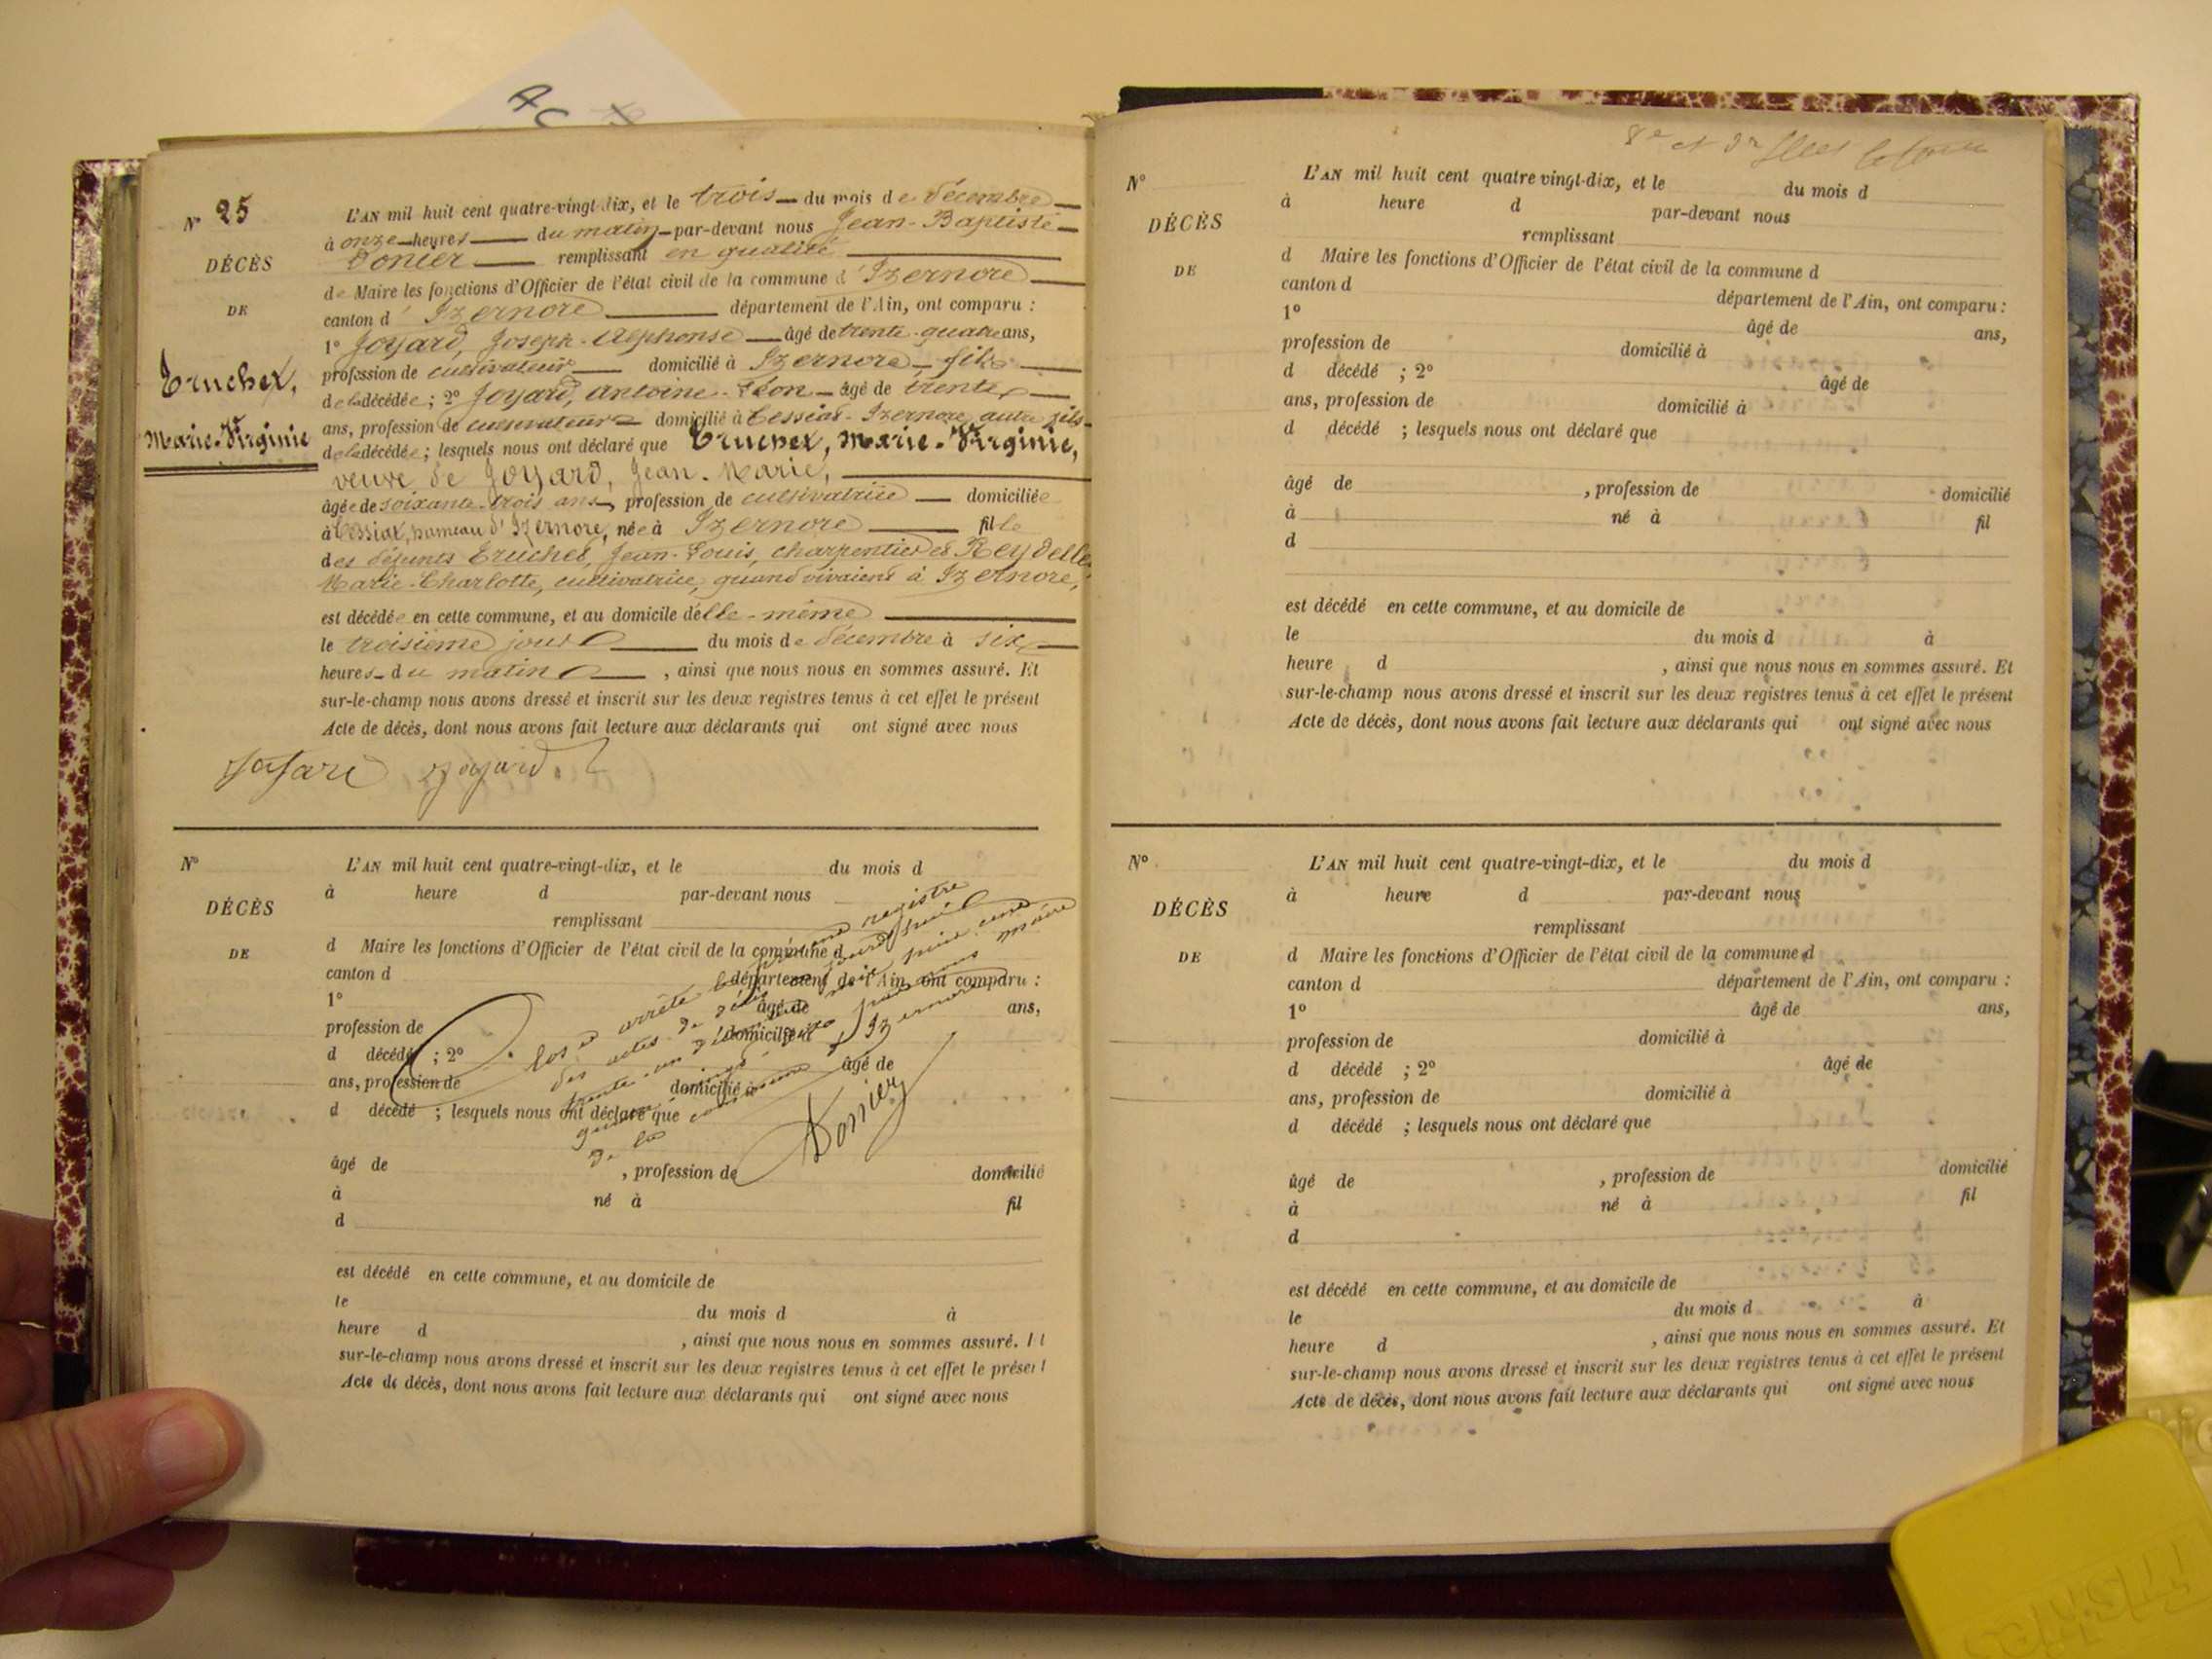 AC
N° 25
DÉCÈS
DE
Truchet,
Marie-Virginie
L'AN mil huit cent quatre-vingt-dix, et le trois du mois de décembre
à onze heures du matin par-devant nous Jean-Baptiste
Donier remplissant en qualité
de Maire les fonctions d'Officier de l'état civil de la commune d'Izernore
canton d'Izernore département de l'Ain, ont comparu :
1° Joyard, Joseph-Alphonse âgé de trente-quatre ans,
profession de cultivateur domicilié à Izernore, fils
de la décédée ; 2° Joyard, Antoine-Léon âgé de trente
ans, profession de cultivateur domicilié à Tessiat-Izernore, autre fils
de la décédée ; lesquels nous ont déclaré que Truchet, Marie-Virginie,
veuve de Joyard, Jean-Marie,
âgée de soixante-trois ans, profession de cultivatrice domiciliée
à Tessiat, hameau d'Izernore, née à Izernore fille
des défunts Truchet, Jean-Louis, charpentier et Reydellet
Marie-Charlotte, cultivatrice, quand vivaient à Izernore,
est décédée en cette commune, et au domicile d'elle-même
le troisième jour du mois de décembre à six
heures du matin , ainsi que nous nous en sommes assuré. Et
sur-le-champ nous avons dressé et inscrit sur les deux registres tenus à cet effet le présent
Acte de décès, dont nous avons fait lecture aux déclarants qui ont signé avec nous
Joyard
N°
DÉCÈS
DE
L'AN mil huit cent quatre-vingt-dix, et le du mois d
à heure d par-devant nous
remplissant
d Maire les fonctions d'Officier de l'état civil de la commune d
canton d département de l'Ain, ont comparu :
1° âgé de ans,
profession de domicilié à
d décédé ; 2° âgé de
ans, profession de domicilié à
d décédé ; lesquels nous ont déclaré que
âgé de , profession de domicilié
à né à fil
d
est décédé en cette commune, et au domicile de
le du mois d à
heure d , ainsi que nous nous en sommes assuré. Et
sur-le-champ nous avons dressé et inscrit sur les deux registres tenus à cet effet le présent
Acte de décès, dont nous avons fait lecture aux déclarants qui ont signé avec nous
Clos et arrêté le présent registre
des actes de décès aujourd'hui
trente-un décembre mil huit cent
quatre-vingt-dix par nous maire
de la commune d'Izernore
Donier
8e et 9e
N°
DÉCÈS
DE
L'AN mil huit cent quatre vingt-dix, et le du mois d
à heure d par-devant nous
remplissant
d Maire les fonctions d'Officier de l'état civil de la commune d
canton d département de l'Ain, ont comparu :
1° âgé de ans,
profession de domicilié à
d décédé ; 2° âgé de
ans, profession de domicilié à
d décédé ; lesquels nous ont déclaré que
âgé de , profession de domicilié
à né à fil
d
est décédé en cette commune, et au domicile de
le du mois d à
heure d , ainsi que nous nous en sommes assuré. Et
sur-le-champ nous avons dressé et inscrit sur les deux registres tenus à cet effet le présent
Acte de décès, dont nous avons fait lecture aux déclarants qui ont signé avec nous
N°
DÉCÈS
DE
L'AN mil huit cent quatre-vingt-dix, et le du mois d
à heure d par-devant nous
remplissant
d Maire les fonctions d'Officier de l'état civil de la commune d
canton d département de l'Ain, ont comparu :
1° âgé de ans,
profession de domicilié à
d décédé ; 2° âgé de
ans, profession de domicilié à
d décédé ; lesquels nous ont déclaré que
âgé de , profession de domicilié
à né à fil
d
est décédé en cette commune, et au domicile de
le du mois d à
heure d , ainsi que nous nous en sommes assuré. Et
sur-le-champ nous avons dressé et inscrit sur les deux registres tenus à cet effet le présent
Acte de décès, dont nous avons fait lecture aux déclarants qui ont signé avec nous